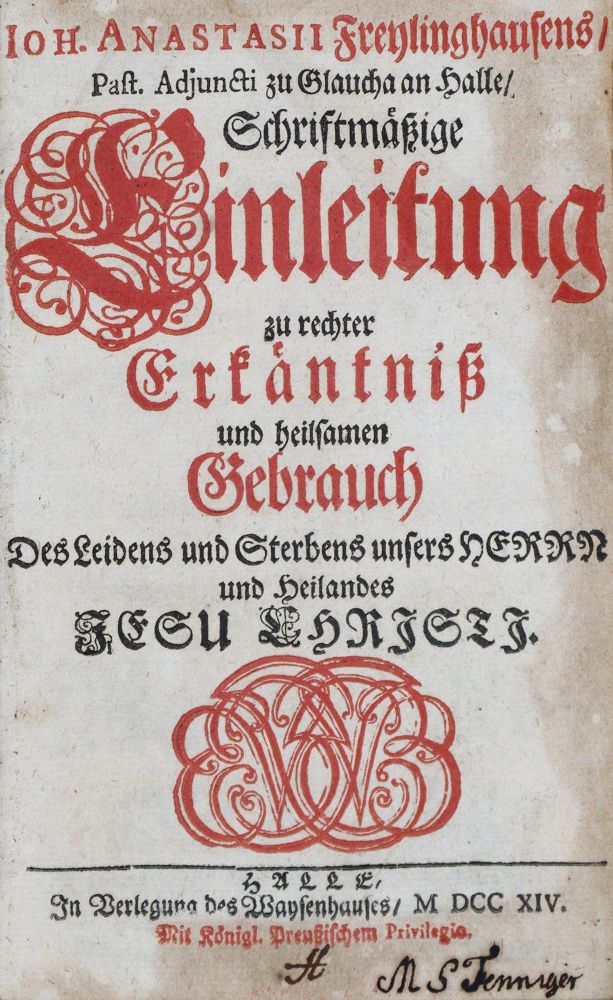 IOH. ANASTASII Freylinghausens/
Past. Adjuncti zu Glaucha an Halle/
Schriftmäßige
Einleitung
zu rechter
Erkäntniß
und heilsamen
Gebrauch
Des Leidens und Sterbens unsers HERRN
und Heilandes
JESU CHRISTI.
HALLE,
In Verlegung des Waysenhauses/ M DCC XIV.
Mit Königl. Preußischem Privilegio.
H
M S Fenniger